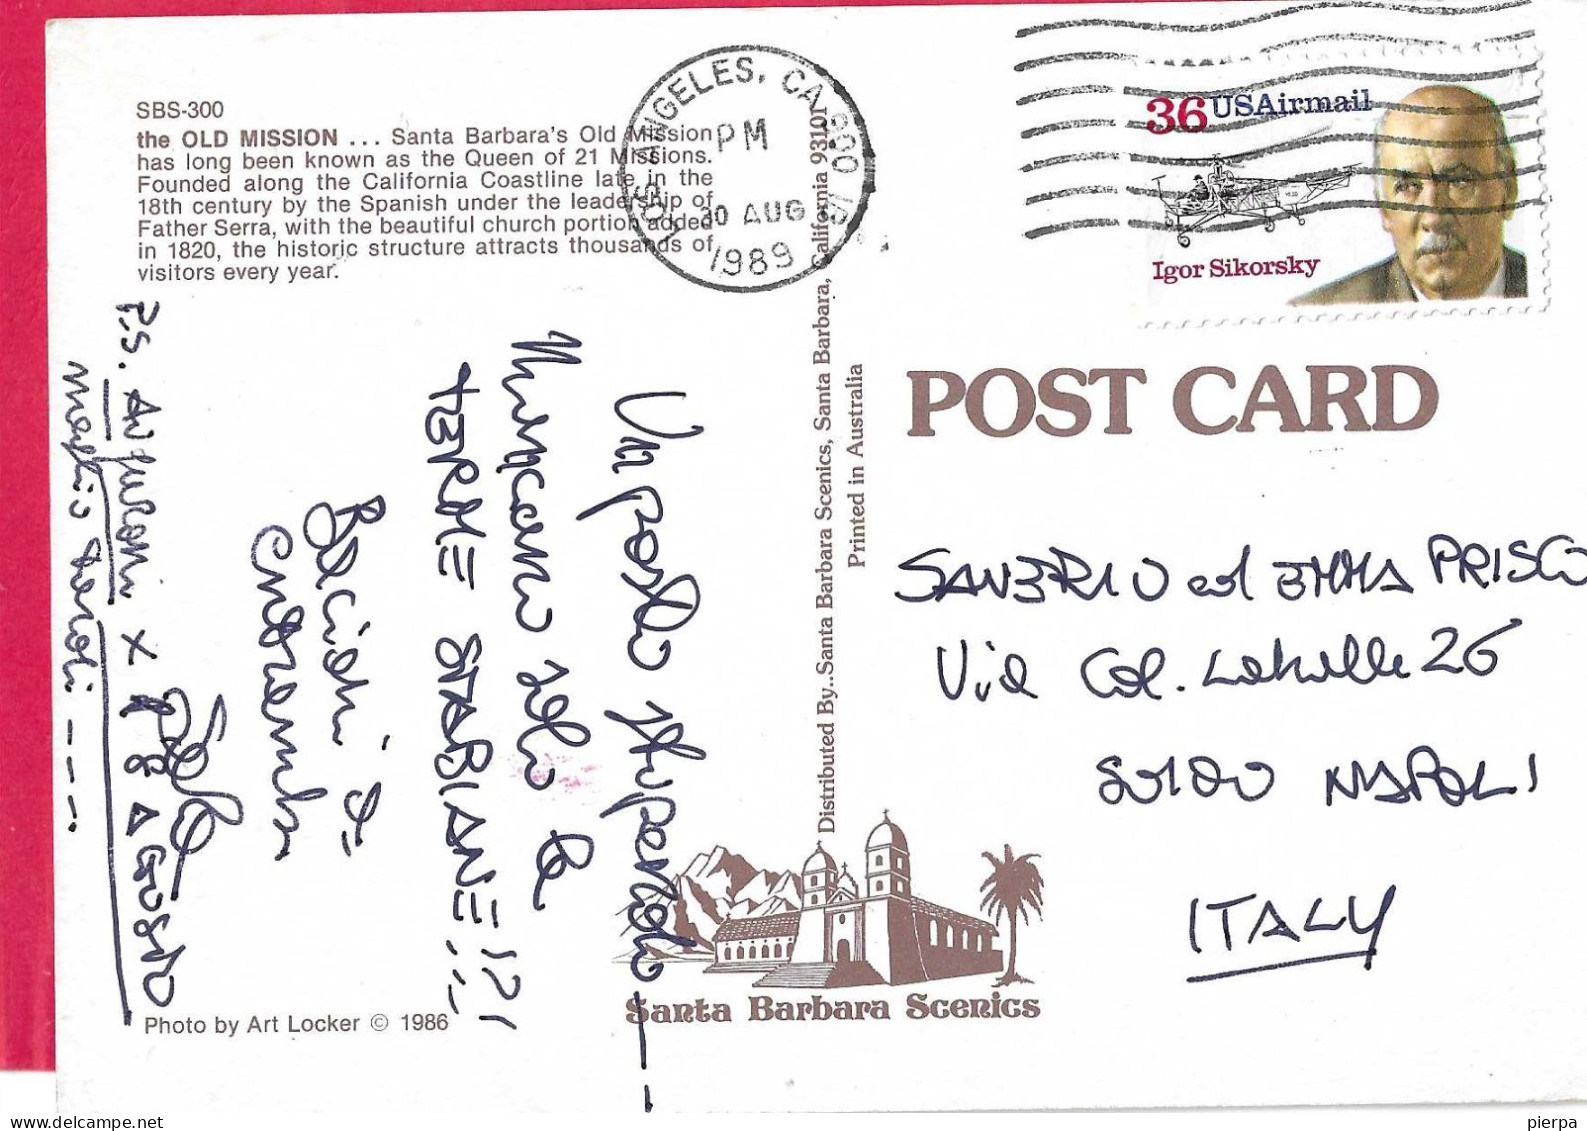 SBS-300
the OLD MISSION ... Santa Barbara's Old Mission
has long been known as the Queen of 21 Missions.
Founded along the California Coastline late in the
18th century by the Spanish under the leadership of
Father Serra, with the beautiful church portion added
in 1820, the historic structure attracts thousands of
visitors every year.
LOS ANGELES, CA 900
PM
30 AUG
1989
36 USAirmail
Igor Sikorsky
POST CARD
Distributed By..Santa Barbara Scenics, Santa Barbara, California 93101
Printed in Australia
Un posto stupendo
mancano solo le
TERME STABIANE!?!
Bacioni a
entrambi
P.S. Auguroni x
AGOSTO
meglio tardi
SAVERIO ed EMMA PRISCO
Via Col. 26
NAPOLI
ITALY
Santa Barbara Scenics
Photo by Art Locker © 1986
pierpa